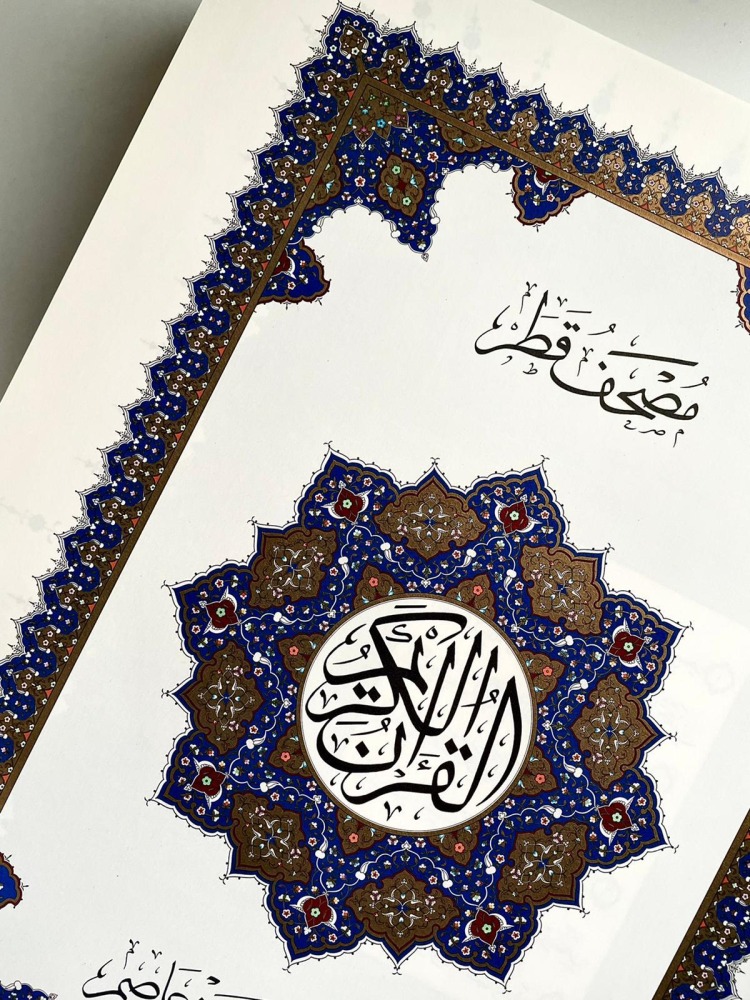 مُصْحَفُ قَطَر
القُرْآنُ الْكَرِيْمُ